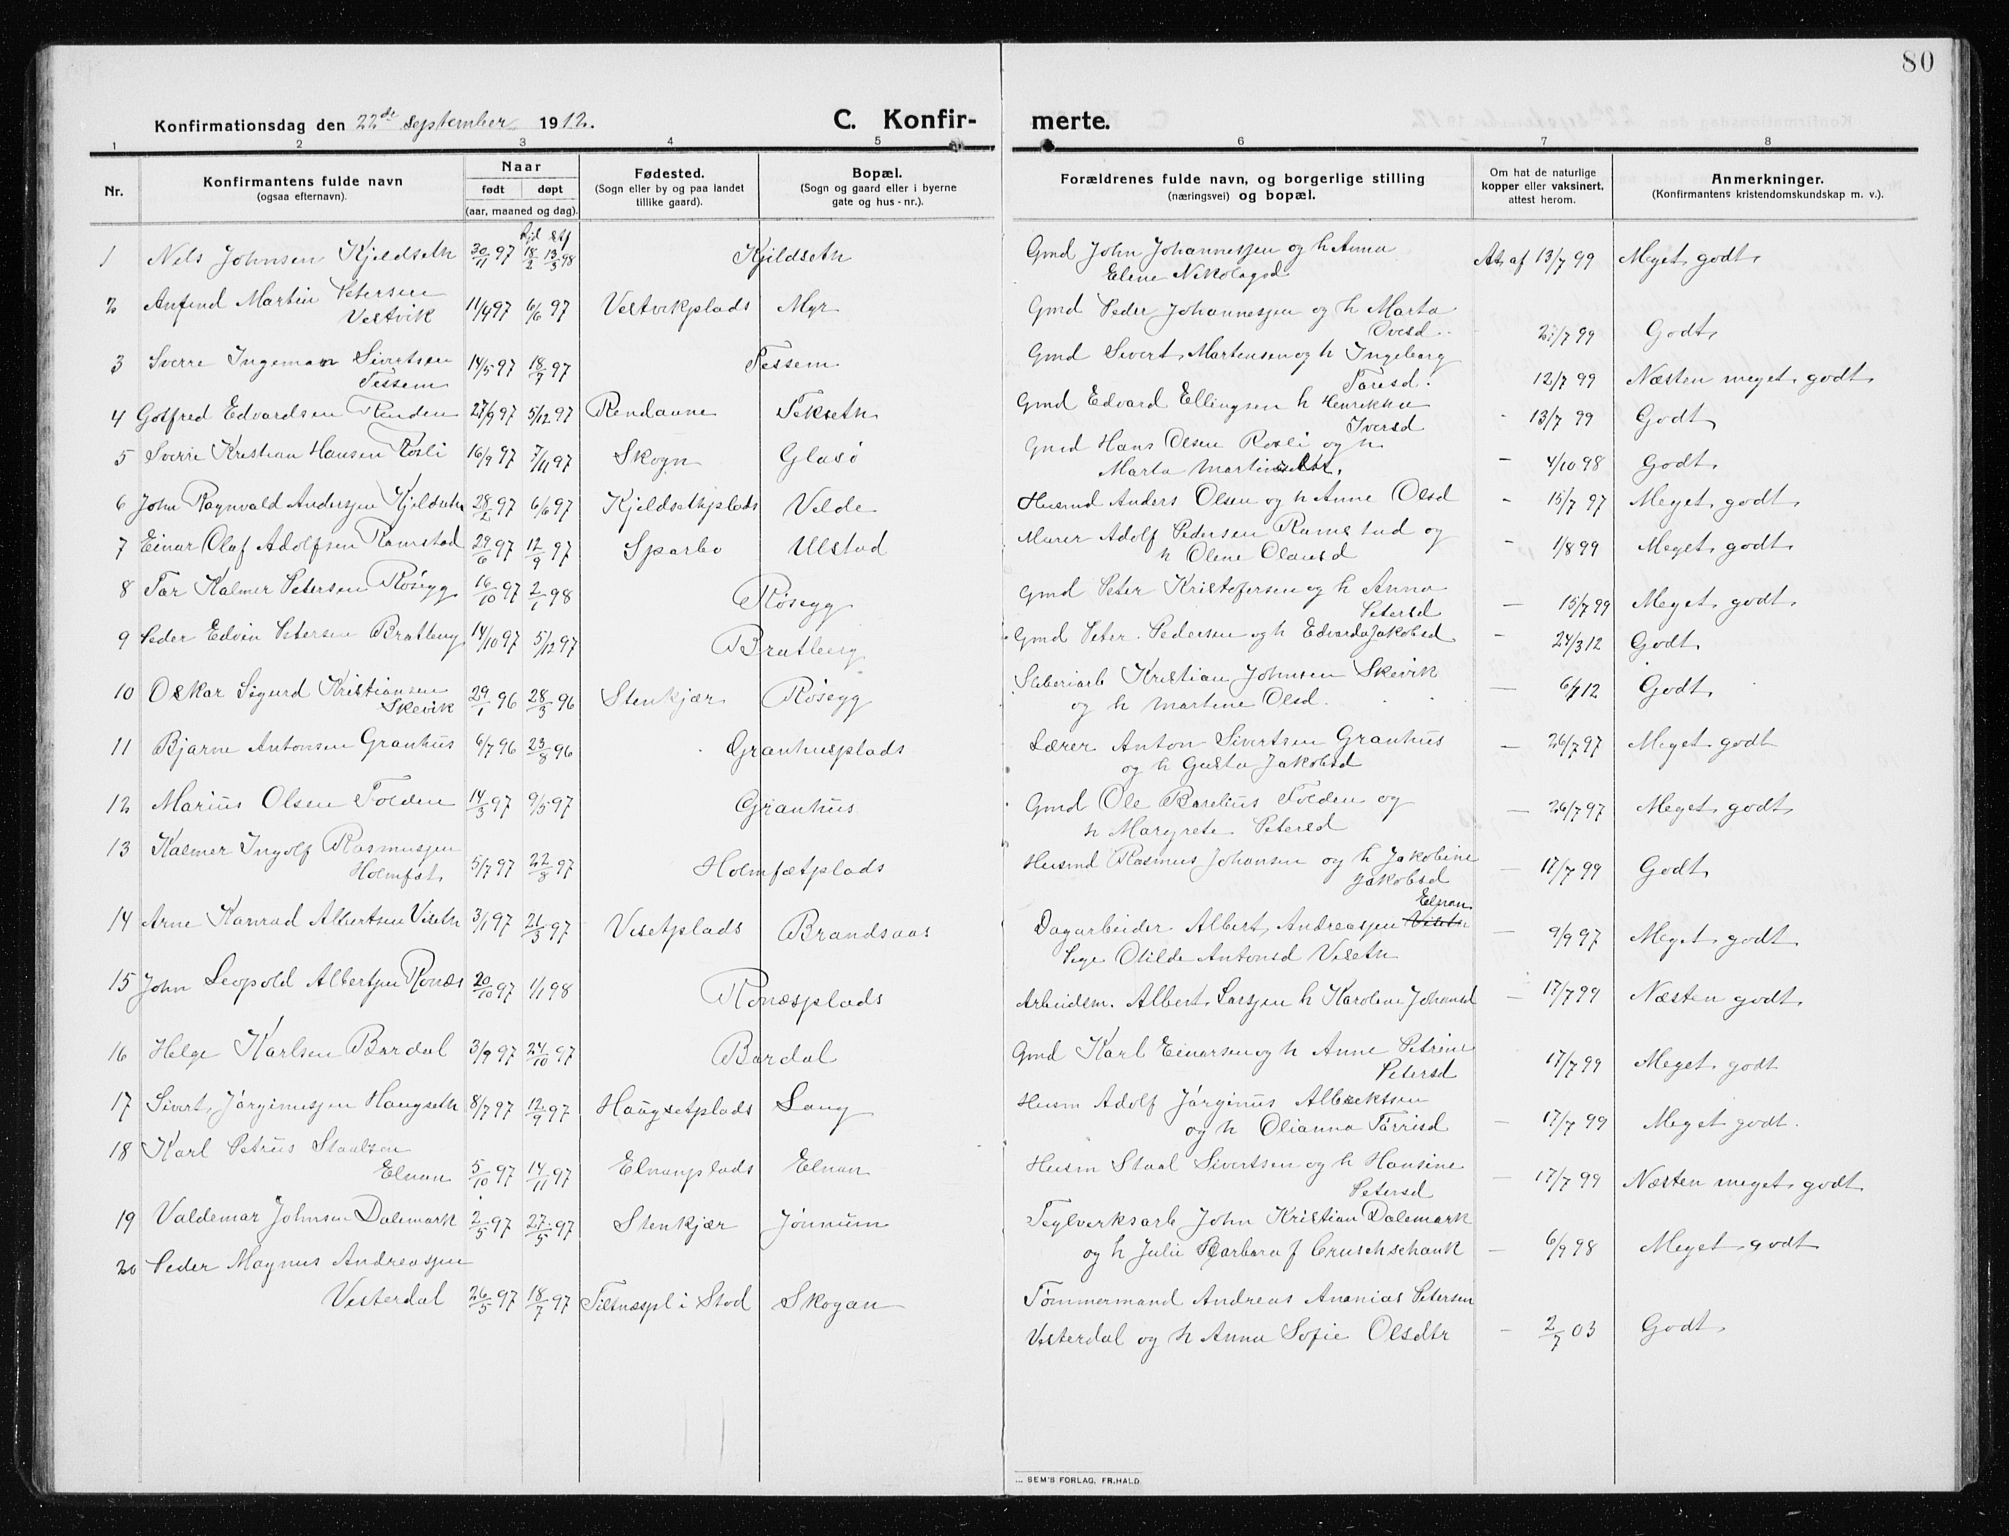 80
Konfirmationsdag den 22de September 1912.
C. Konfir-
merte.
1 2 3 4 5 6 7 8
Nr.
Konfirmantens fulde navn
(ogsaa efternavn).
Naar
født døpt
(aar, maaned og dag).
Fødested.
(Sogn eller by og paa landet
tillike gaard).
Bopæl.
(Sogn og gaard eller i byerne
gate og hus-nr.).
Forældrenes fulde navn, og borgerlige stilling
(næringsvei) og bopæl.
Om hat de naturlige
kopper eller vaksinert,
attest herom.
Anmerkninger.
(Konfirmantens kristendomskundskap m. v.).
1 Nils Johnsen Kjeldseth 30/11 97 hjd 18/2 stf 13/3 98 Kjeldseth Gmd John Johannessen og h Anna
Elene Nikolaisd At. af 13/7 99 Meget godt
2 Anfind Martin Petersen
Vestvik 11/4 97 6/6 97 Vestvikplads Myr Gmd Peder Johannessen og h Marta
Ovesd. 21/7 99 Godt
3 Sverre Ingeman Sivertsen
Tessem 14/5 97 18/7 97 Tessem Gmd Sivert Martensen og h Ingeborg
Taresd. 12/7 99 Næsten meget godt
4 Gotfred Edvardsen Rinden 27/9 97 5/12 97 Rendaune Tekseth Gmd Edvard Ellingsen h Henrikka
Iversd 13/7 99 Godt
5 Sverre Kristian Hansen Rosli 16/9 97 7/11 97 Skogn Glasø Gmd Hans Olsen Rosli og h
Marta Martinsdtr. - 4/10 98 Godt
6 John Ragnvald Andersen Kjeldseth 28/2 97 6/6 97 Kjeldsethplads Velde Husmd Anders Olsen og h Anne Olsd - 15/7 97 Meget godt
7 Einar Olaf Adolfsen Ramstad 29/6 97 12/9 97 Sparbo Ulstad Murer Adolf Pedersen Ramstad og
h Oline Olausd - 1/8 99 Meget godt
8 Tor Kalmer Petersen Røsegg 16/10 97 2/1 98 Røsegg Gmd Peter Kristofersen og h Anna
Petersd - 15/7 99 Meget godt
9 Peder Edvin Petersen Bratberg 14/10 97 5/12 97 Bratberg Gmd Peter Pedersen og h Edvarda Jakobsd - 24/3 12 Godt
10 Oskar Sigurd Kristiansen
Skevik 29/1 96 28/3 96 Stenkjær Røsegg Sliberiarb Kristian Johnsen Skevik
og h Martine Olsd. - 6/1 12 Godt
11 Bjarne Antonsen Granhus 6/7 96 23/8 96 Granhusplads Lærer Anton Sivertsen Granhus
og h Gusta Jakobsd - 26/7 97 Meget godt
12 Marius Olsen Folden 14/3 97 9/5 97 Granhus Gmd Ole Barelius Folden og
h Margrete Petersd - 26/7 97 Meget godt
13 Kalmer Ingolf Rasmussen
Holmfæt 5/7 97 22/8 97 Holmfætplads Husmd Rasmus Johansen og h Jakobine
Jakobsd - 17/7 99 Godt
14 Arne Konrad Albertsen Viseth 3/1 97 21/3 97 Visetplads Brandsaas Dagarbeider Albert Andreassen Viseth Elnan
Pige Otilde Antonsd Viseth - 9/9 97 Meget godt
15 John Leopold Albertsen Ronæs 20/10 97 1/1 98 Ronæsplads Arbeidsm. Albert Larssen h Karoline Johansd - 17/7 99 Næsten godt
16 Helge Karlsen Bardal 3/9 97 24/10 97 Bardal Gmd Karl Einarsen og h Anne Petrine
Petersd 17/7 99 Meget godt
17 Sivert Jørginussen Haugseth 8/7 97 12/9 97 Haugsetplads Laug Husm Adolf Jørginus Albriktsen
og h Olianna Torrisd - 17/7 99 Meget godt.
18 Karl Petrus Staalsen
Elnan 5/10 97 14/11 97 Elnanplads Elnan Husm Staal Sivertsen og h Hansine
Petersd - 17/7 99 Næsten meget godt
19 Valdemar Johnsen Dalemark 2/5 97 27/5 97 Stenkjær Jønnum Teglverksarb John Kristian Dalemark
og h Julie Barbara f Cruschschank - 6/9 98 Meget godt
20 Peder Magnus Andreassen
Vesterdal 26/5 97 18/7 97 Tilsnæspl i Stod Skogan Tømmermand Andreas Ananias Petersen
Vesterdal og h Anna Sofie Olsdtr - 2/7 03 Godt
SEM'S FORLAG, FR.HALD